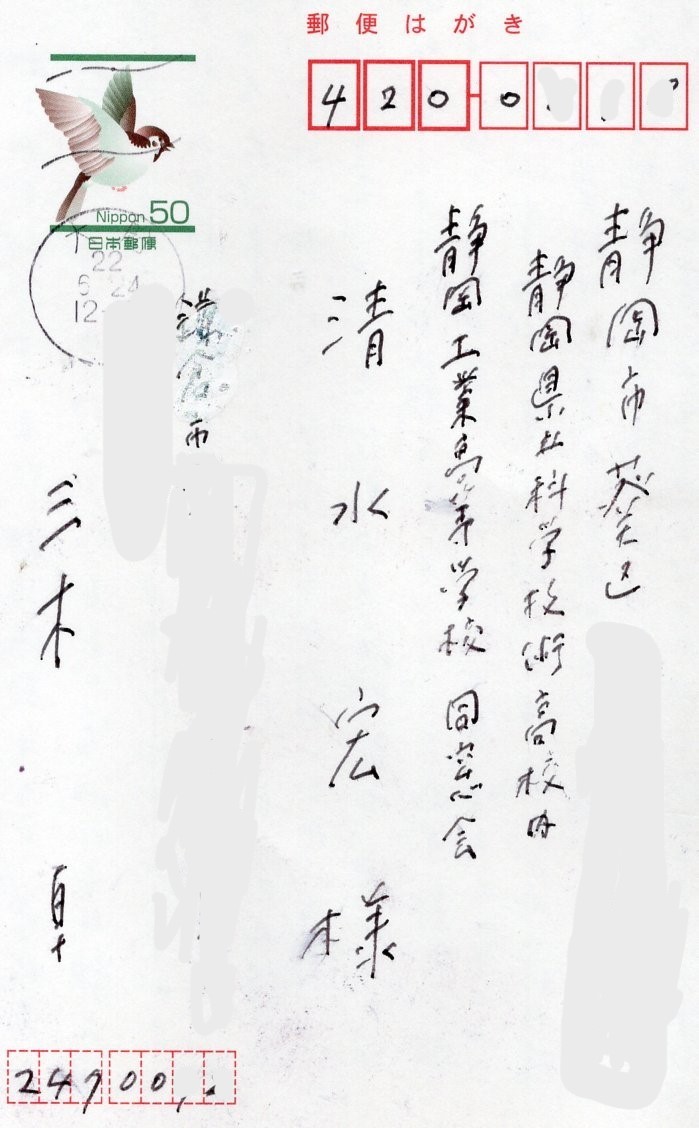 郵便はがき
420-0
Nippon 50
日本郵便
22
6 24
12
静岡市葵区
静岡県立科学技術高校内
静岡工業高等学校 同窓会
清水宏様
鎌倉市
三木卓
24900